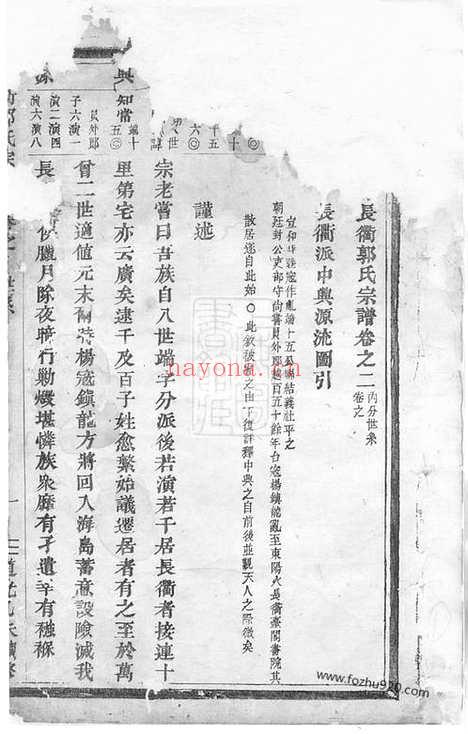 長衢郭氏宗譜卷之二 内分世系 卷之
長衢派中興源流圖引
宣和 寇作亂端十五公 結義社平之
朝廷封公吏部守尚書員外郎越百五十餘年台寇楊鎮龍亂至東陽火長衢豪閣書院其
散居迄自此始〇此敘被 之由下復詳釋中興之自前後並觀天人之際微矣
謹述
宗老嘗曰吾族自八世端字分派後若演若千居長衢者接連十
里第宅亦云廣矣逮千及百子姓愈繁始議遷居者有之至於萬
曾二世適值元末 楊寇鎮龍方將回入海島蓄意設險滅我
長 臘月除夜暗行勦燬堪憐族衆靡有孑遺幸有襁褓
十
千五
六〇
世
興
知當
端十五〇
員外郎
子六演一
演二演四
演六演八
郭氏宗
世系
一
www.nayona.cn
www.fozhu920.com